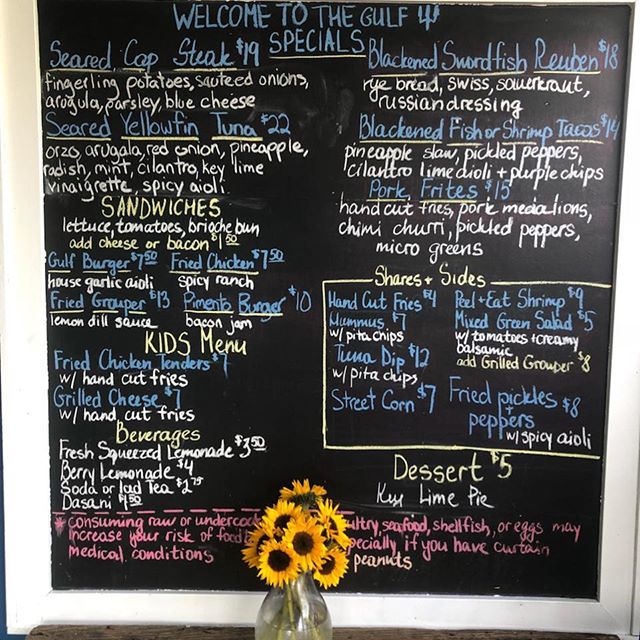 WELCOME TO THE GULF
SPECIALS
Seared Cap Steak $19
fingerling potatoes, sauteed onions,
arugula, parsley, blue cheese
Seared Yellowfin Tuna $22
orzo, arugala, red onion, pineapple,
radish, mint, cilantro, key lime
vinaigrette, spicy aioli
SANDWICHES
lettuce, tomatoes, brioche bun
add cheese or bacon $1.50
Gulf Burger $7.50 Fried Chicken $7.50
house garlic aioli spicy ranch
Fried Grouper $13 Pimento Burger $10
lemon dill sauce bacon jam
KIDS Menu
Fried Chicken Tenders $7
w/ hand cut fries
Grilled Cheese $7
w/ hand cut fries
Beverages
Fresh Squeezed Lemonade $3.50
Berry Lemonade $4
Soda or Iced Tea $2.75
Dasani $1.50
Blackened Swordfish Reuben $18
rye bread, swiss, sauerkraut,
russian dressing
Blackened Fish or Shrimp Tacos $14
pineapple slaw, pickled peppers,
cilantro lime aioli + purple chips
Pork Frites $15
hand cut fries, pork medallions,
chimi churri, pickled peppers,
micro greens
Shares + Sides
Hand Cut Fries $4
Hummus $7
w/ pita chips
Tuna Dip $12
w/ pita chips
Street Corn $7
Peel + Eat Shrimp $9
Mixed Green Salad $5
w/ tomatoes + creamy
balsamic
add Grilled Grouper $8
Fried pickles
+
peppers $8
w/ spicy aioli
Dessert $5
Key Lime Pie
* consuming raw or seafood, shellfish, or eggs may
increase your risk of if you have curtain
medical conditions peanuts